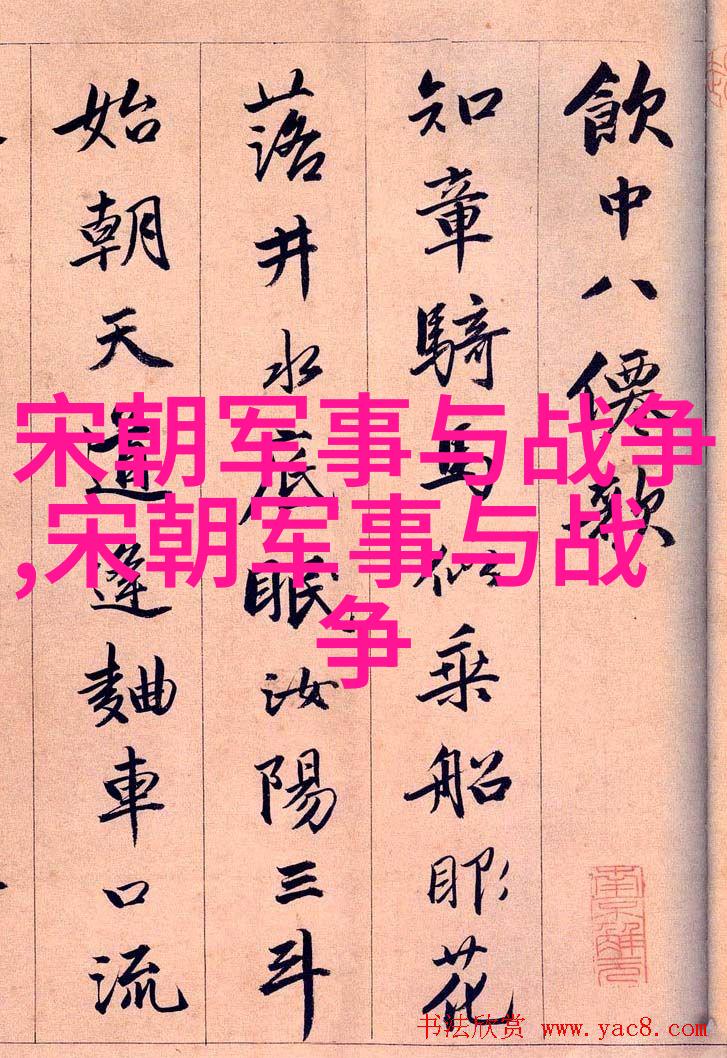 飲中八僊歌
知章騎馬似乘船眼花
落井水底眠汝陽三斗
始朝天道逢麯車口流
宋朝军事与战争
,宋朝军事与战
争
南京解元
书法欣赏 www.yac8.com